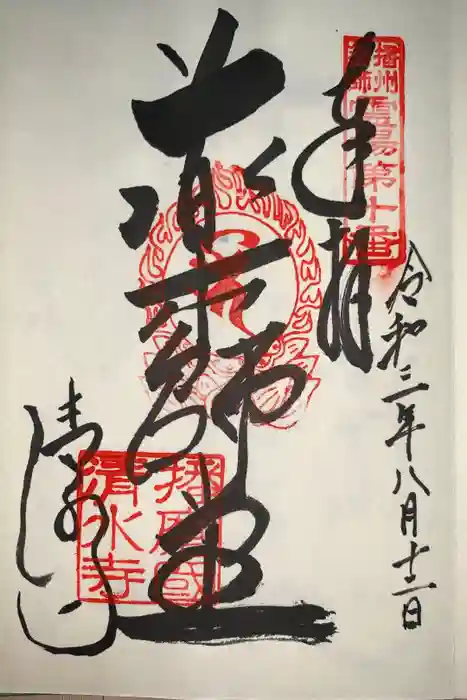 播州
薬師
靈場第十番
奉拝
令和三年八月十二日
薬師堂
播磨國
清水寺
清水寺